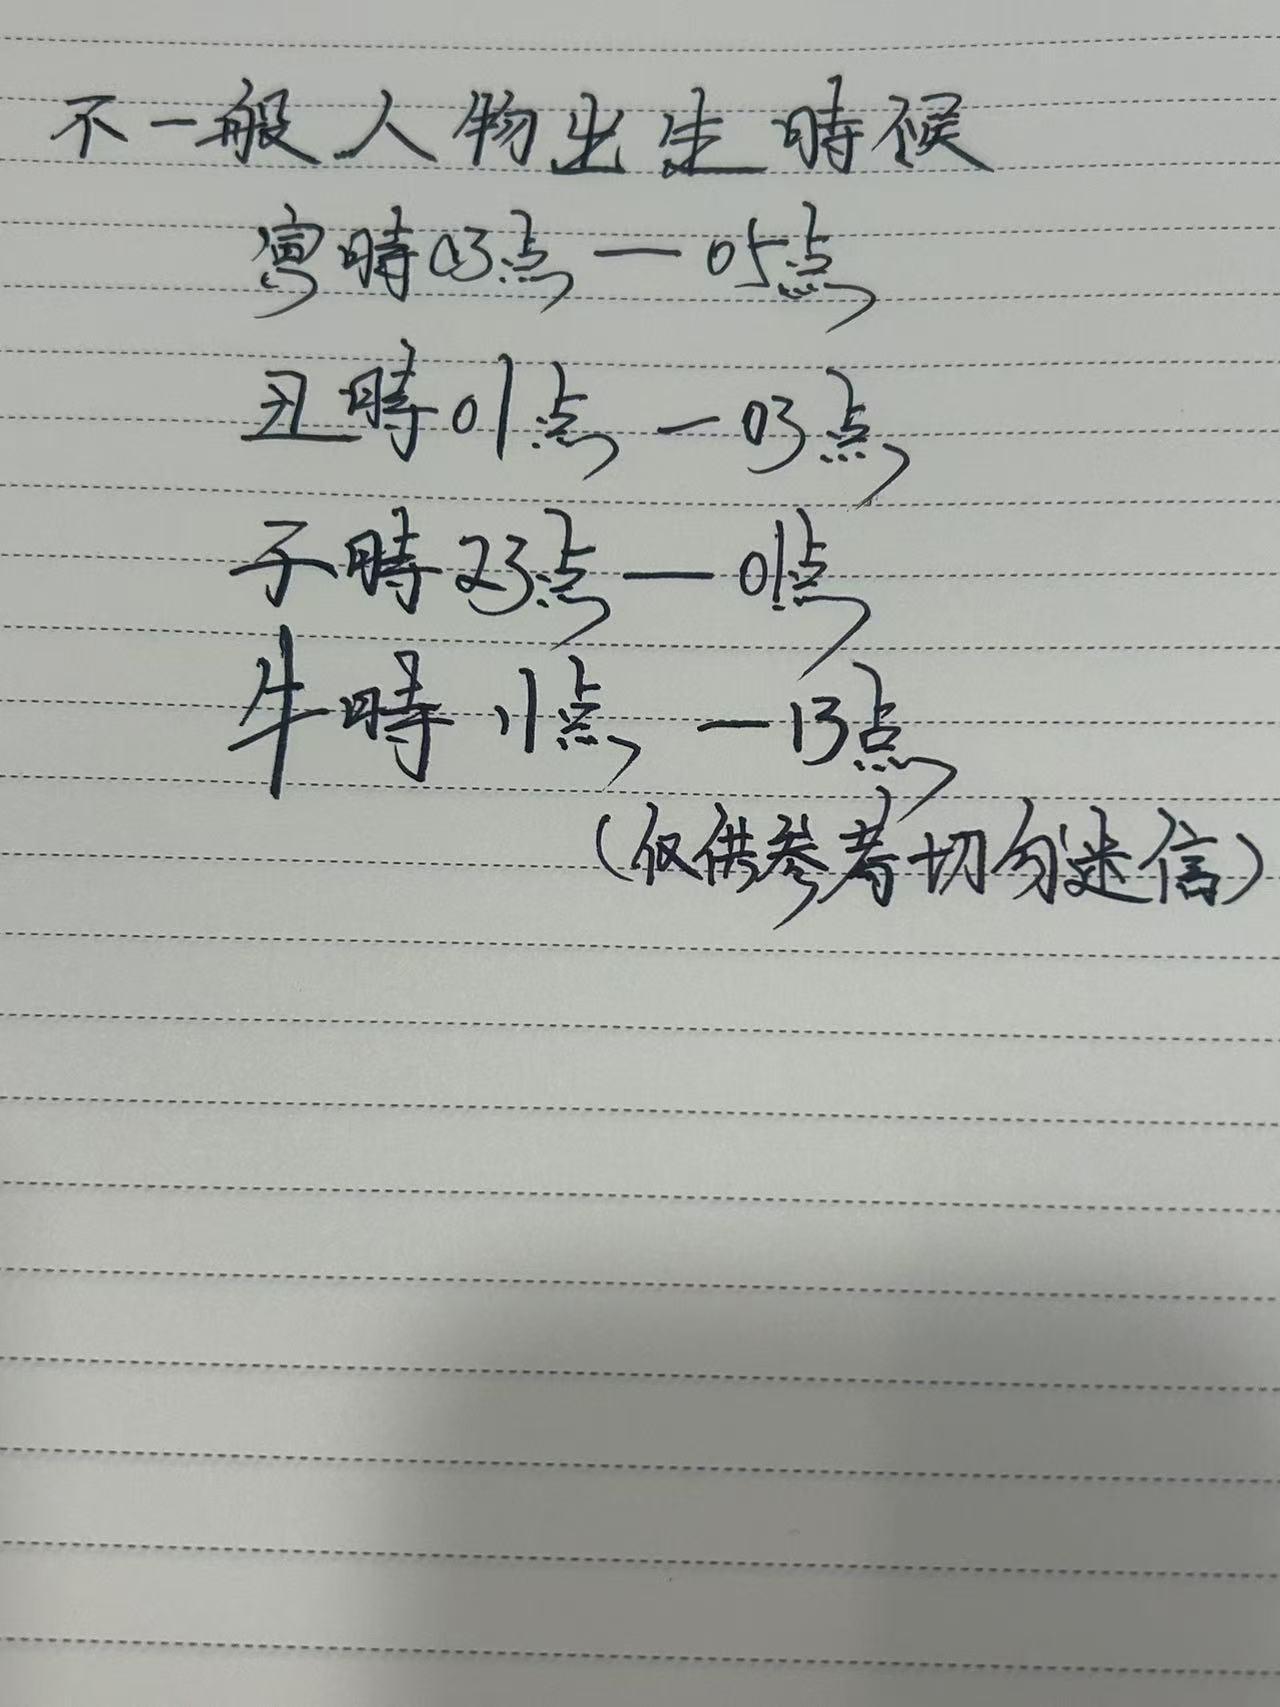 不一般人物出生時候
寅時03点—05点
丑時01点—03点
子時23点—01点
牛時11点—13点
(仅供参考切勿迷信)